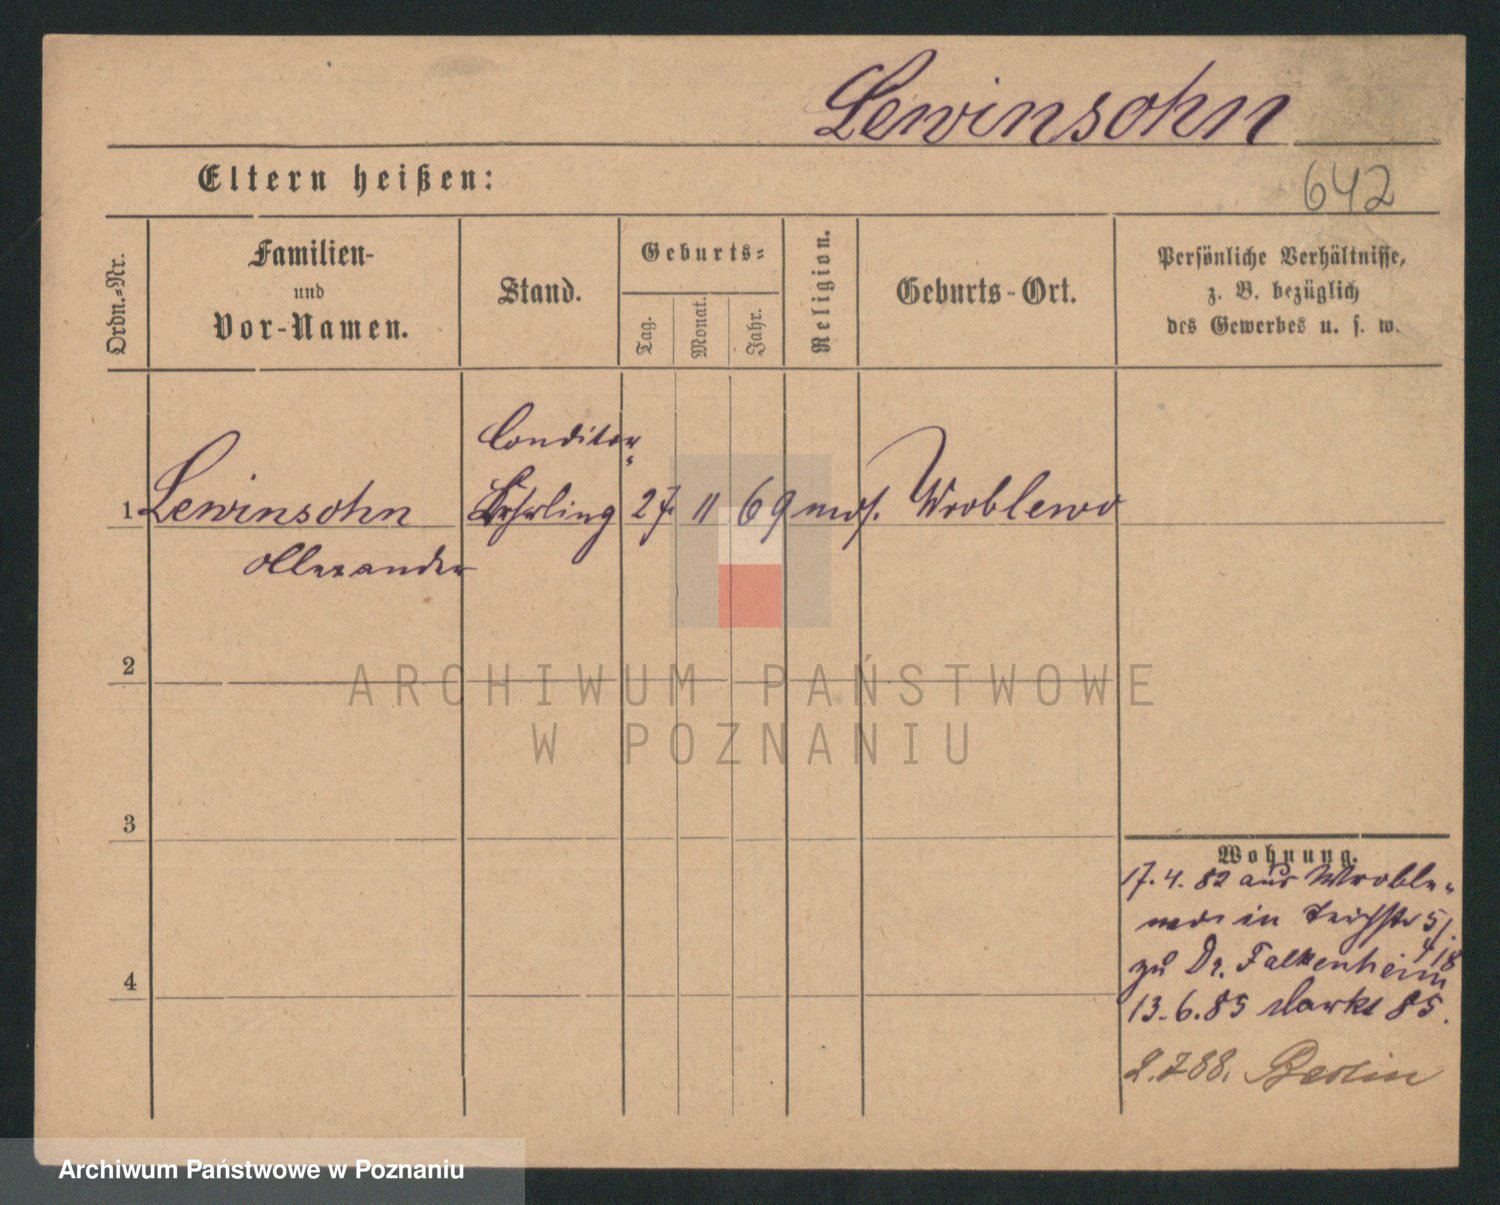 Lewinsohn
Eltern heißen:
642
Ordn.-Nr.
Familien-
und
Vor-Namen.
Stand.
Geburts-
Tag.
Monat.
Jahr.
Religion.
Geburts-Ort.
Persönliche Verhältnisse,
z. B. bezüglich
des Gewerbes u. s. w.
Conditor-
1 Lewinsohn Lehrling 27. 11 69 mos. Wroblewo
Allexander
2
3
4
Wohnung.
17. 4. 82 aus Wroble-
wo in Teichstr 5/.
zu Dr. Falkenheim
13. 6. 85 Markt 85.
2.7 88. Berlin
ARCHIWUM PAŃSTWOWE
W POZNANIU
Archiwum Państwowe w Poznaniu